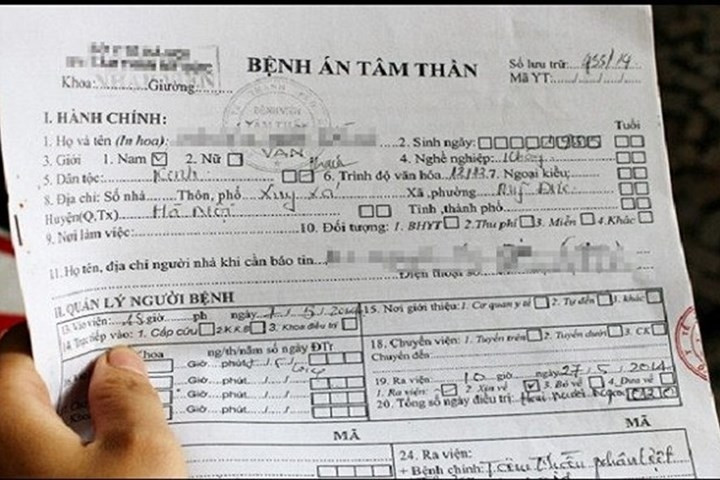 BỆNH ÁN TÂM THẦN
Số lưu trữ: 955/14
Mã YT:...../...../...../.....
Khoa:..............Giường.........
BỆNH VIỆN
TÂM THẦN
I. HÀNH CHÍNH:
Tuổi
1. Họ và tên (In hoa): VĂN 2. Sinh ngày:
3. Giới 1. Nam 2. Nữ 4. Nghề nghiệp:
5. Dân tộc: Kinh 6. Trình độ văn hóa: 12/12 7. Ngoại kiều:
8. Địa chỉ: Số nhà Thôn, phố Xuy Xá Xã ,phường
Huyện(Q.Tx) Tỉnh ,thành phố
9. Nơi làm việc: 10. Đối tượng: 1. BHYT 2. Thu phí 3. Miễn 4. Khác
11. Họ tên, địa chỉ người nhà khi cần báo tin
Điện thoại số
II. QUẢN LÝ NGƯỜI BỆNH
13. Vào viện: 15 giờ ph ngày 5/2014 15. Nơi giới thiệu: 1. Cơ quan y tế 2. Tự đến 3. khác
14. Trực tiếp vào: 1. Cấp cứu 2. K.K.B 3. Khoa điều trị
Khoa ng/th/năm số ngày ĐTrị
18. Chuyển viện: 1. Tuyến trên 2. Tuyến dưới 3. CK
Chuyển đến:
Giờ phút
19. Ra viện: 10 giờ ngày 27/5/2014
Giờ phút.../.../...
1. Ra viện: 2. Xin về 3. Bỏ về 4. Đưa về
Giờ phút.../.../...
20. Tổng số ngày điều trị: Hai mươi ngày
Giờ phút.../.../...
MÃ MÃ
24. Ra viện:
+ Bệnh chính: Tâm thần phân liệt